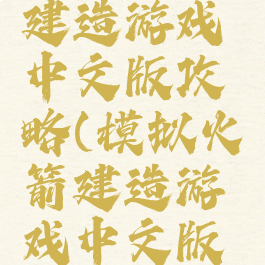 建造游戏
中文版攻
略(模拟火
箭建造游
戏中文版